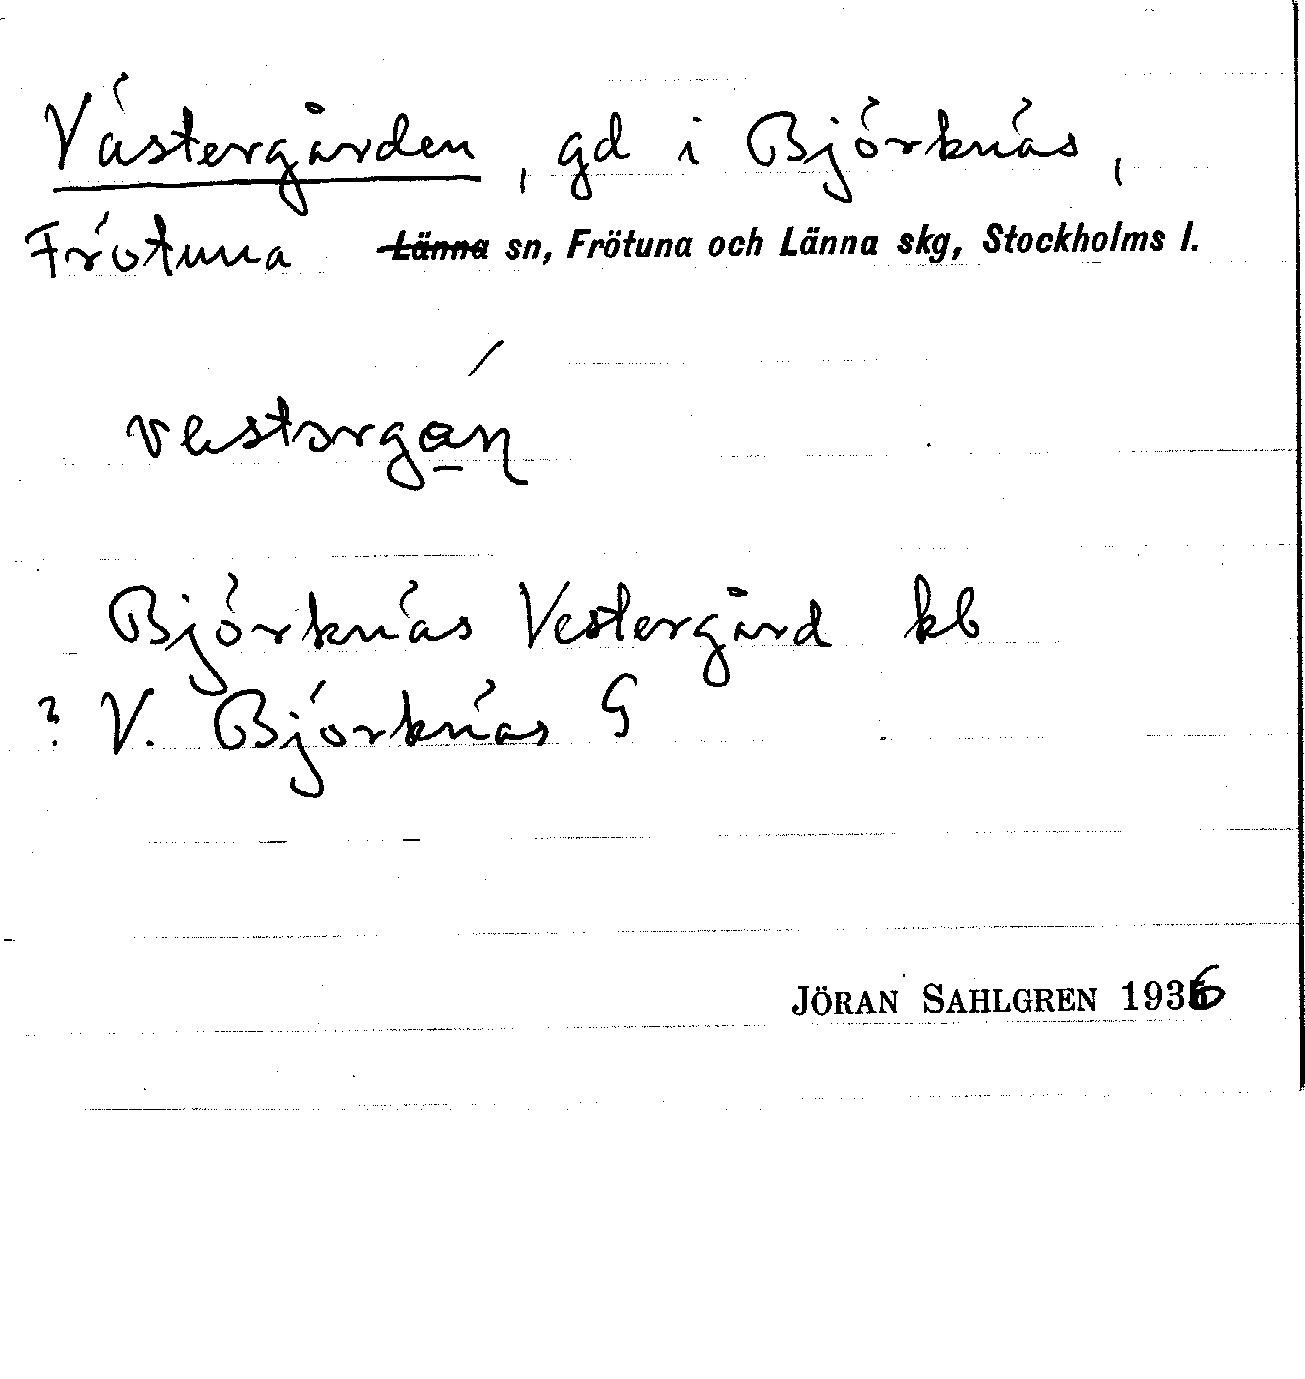 Västergården, gd i Björknäs,
Frötuna ~~Länna~~ sn, Frötuna och Länna skg, Stockholms l.
Björknäs Vestergård kb
? V. Björknäs G
JÖRAN SAHLGREN 1936